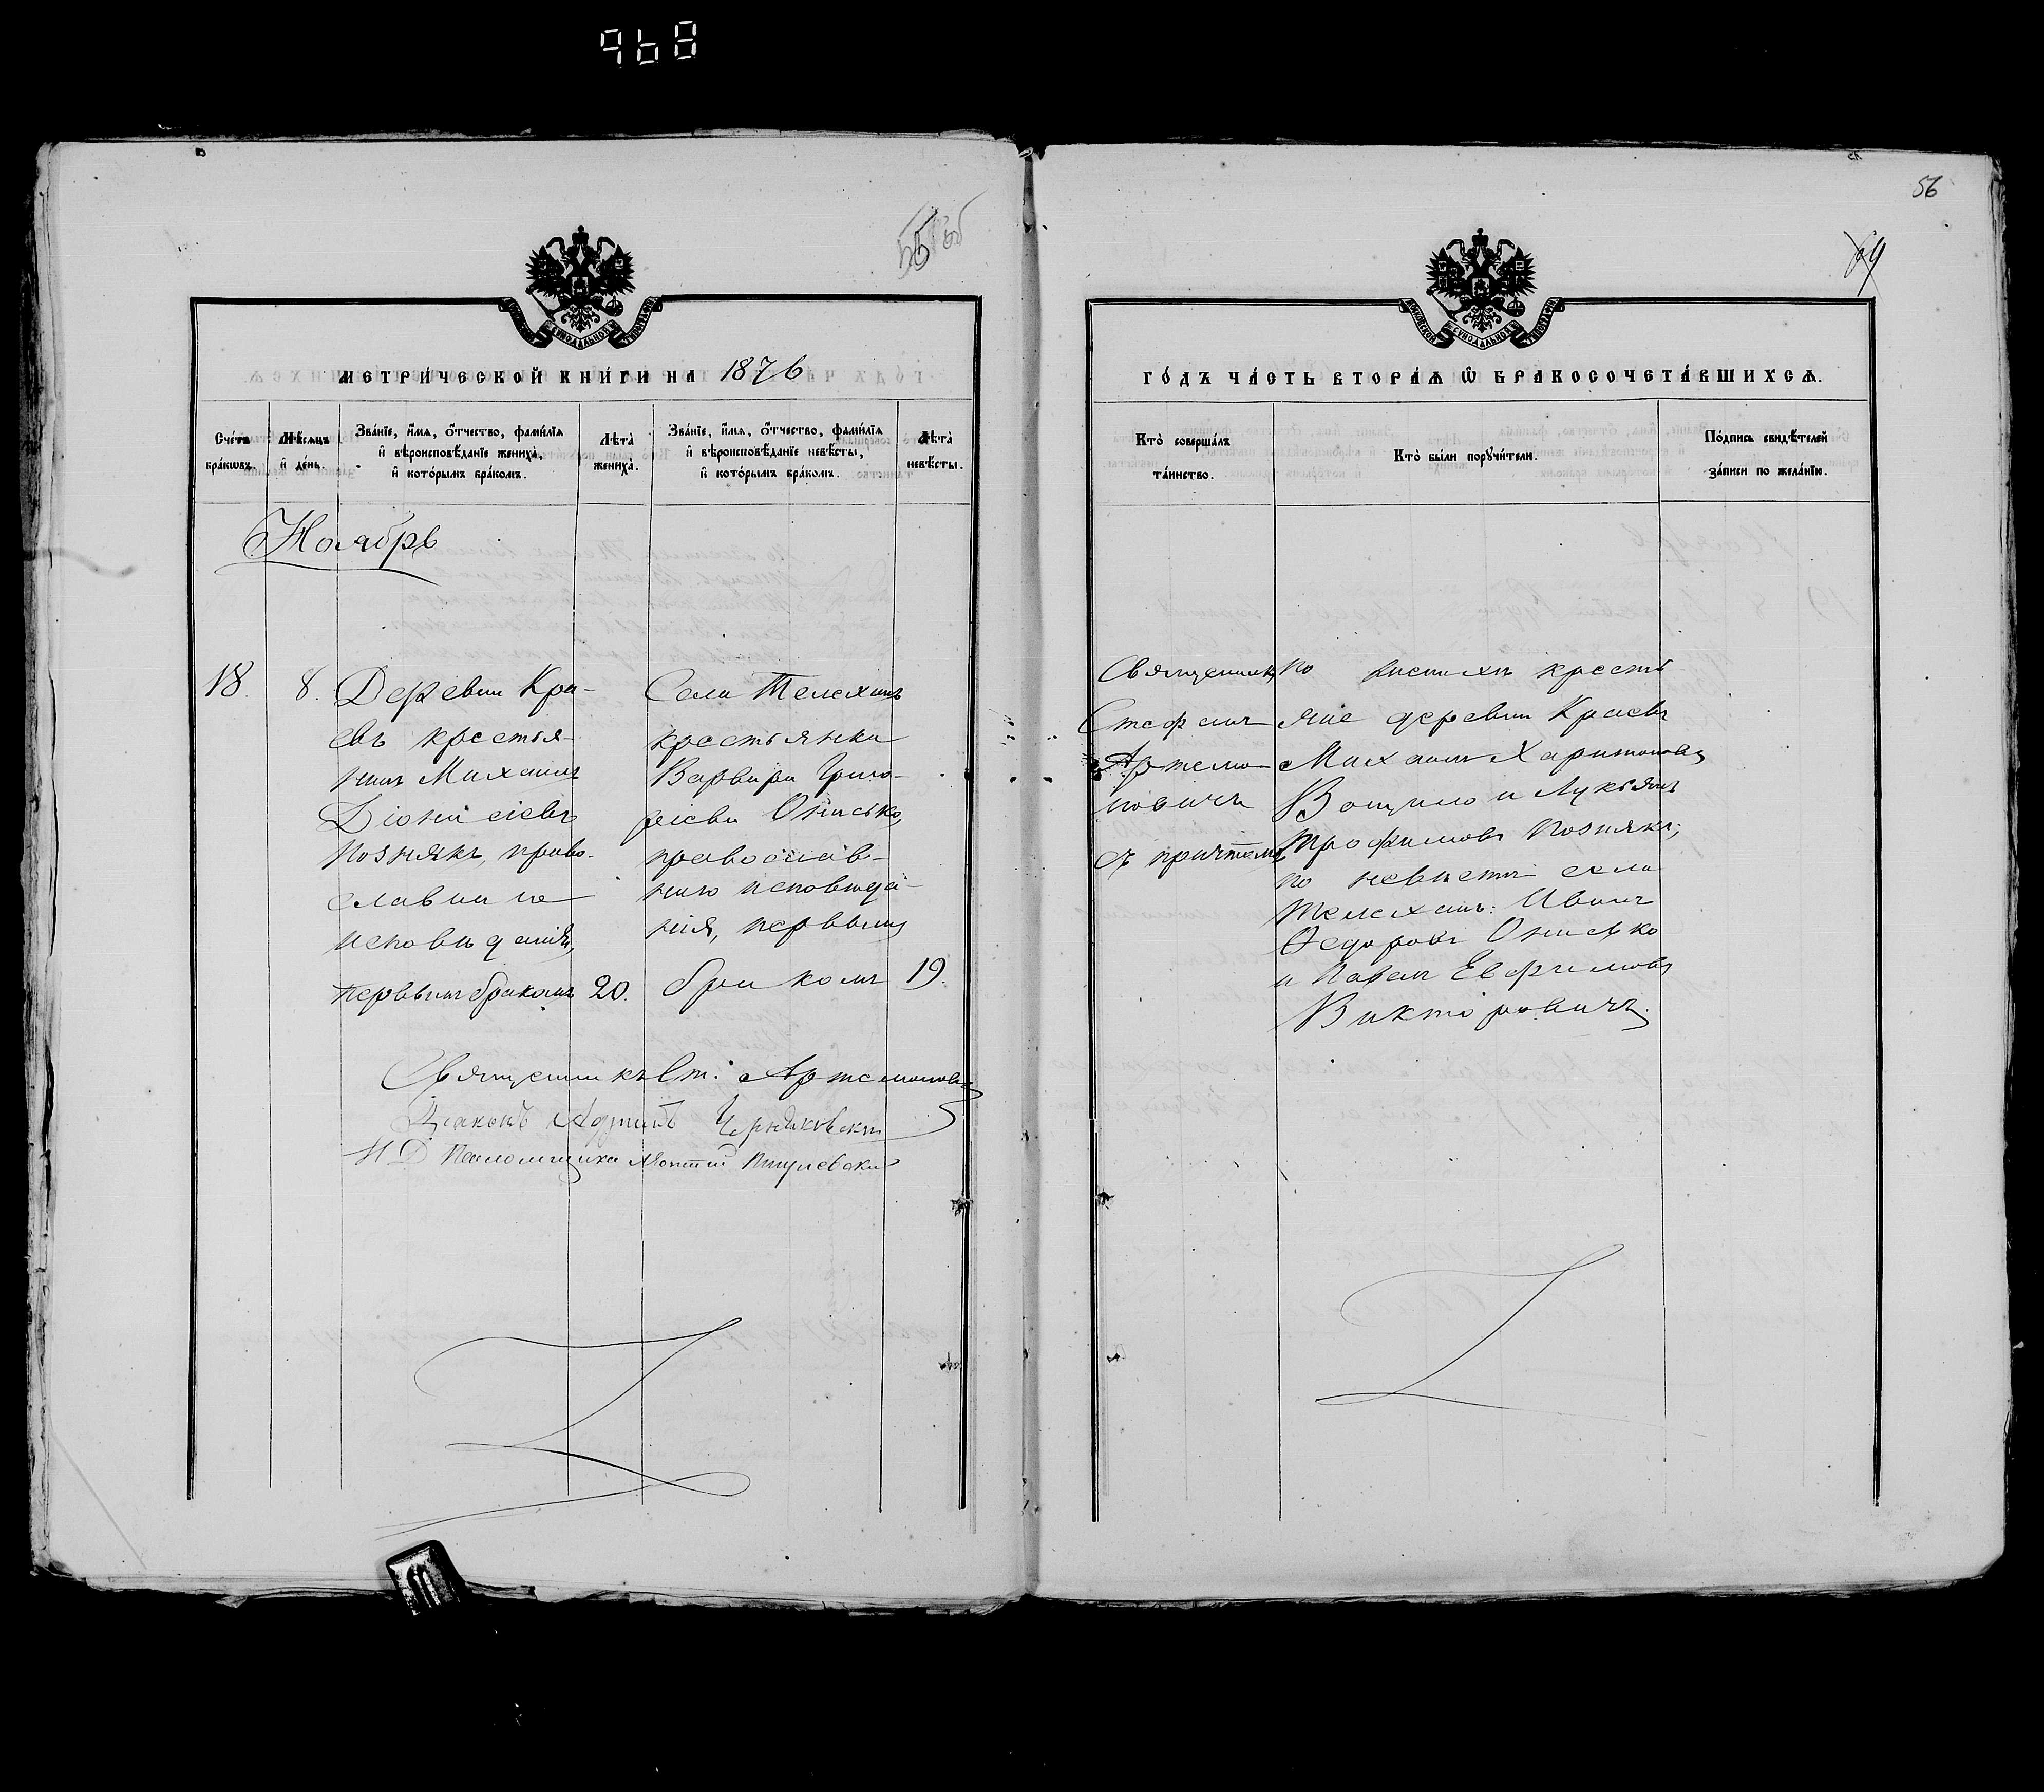 968
55
56
69
МЕТРИ́ЧЕСКОЙ КНИ́ГИ НА 1876
ГО́ДЪ ЧА́СТЬ ВТОРА́Ѧ Ѽ БРАКОСОЧЕТА́ВШИХСѦ.
Сче́тъ бра́кѡвъ.
Мѣ́сѧцъ и҆ де́нь.
Зва́нїе, и҆́мѧ, ѻ҆́тчество, фами́лїѧ
и҆ вѣроисповѣ́данїе жениха̀,
и҆ кото́рымъ бра́комъ.
Лѣта̀ жениха̀.
Зва́нїе, и҆́мѧ, ѻ҆́тчество, фами́лїѧ
и҆ вѣроисповѣ́данїе невѣ́сты,
и҆ кото́рымъ бра́комъ.
Лѣта̀ невѣ́сты.
Кто̀ соверша́лъ
та́инство.
Кто̀ бы́ли порꙋчи́тели.
По́дпись свидѣ́телей
за́писи по жела́нїю.
Ноябрь
18.
8.
Деревни Кра-
евъ крестья-
нинъ Михаилъ
Діонисіевъ
Познякъ, право-
славнаго
исповѣданія,
первымъ бракомъ
20.
Села Телеханъ
крестьянка
Варвара Григо-
ріева Онисько,
православ-
наго исповѣда-
нія, первымъ
бракомъ
19.
Священникъ
Стефанъ
Артемо-
новичъ
съ причтомъ
По женихѣ кресть
яне деревни Краевъ
Михаилъ Харитоновъ
Вощило и Лукьянъ
Трофимовъ Познякъ;
по невѣстѣ села
Телеханъ: Иванъ
Ѳедоровъ Онисько
и Павелъ Евфимовъ
Викторовичъ.
Священникъ Ст. Артемоновичъ
Діаконъ Черняковскій
И Д Псаломщика